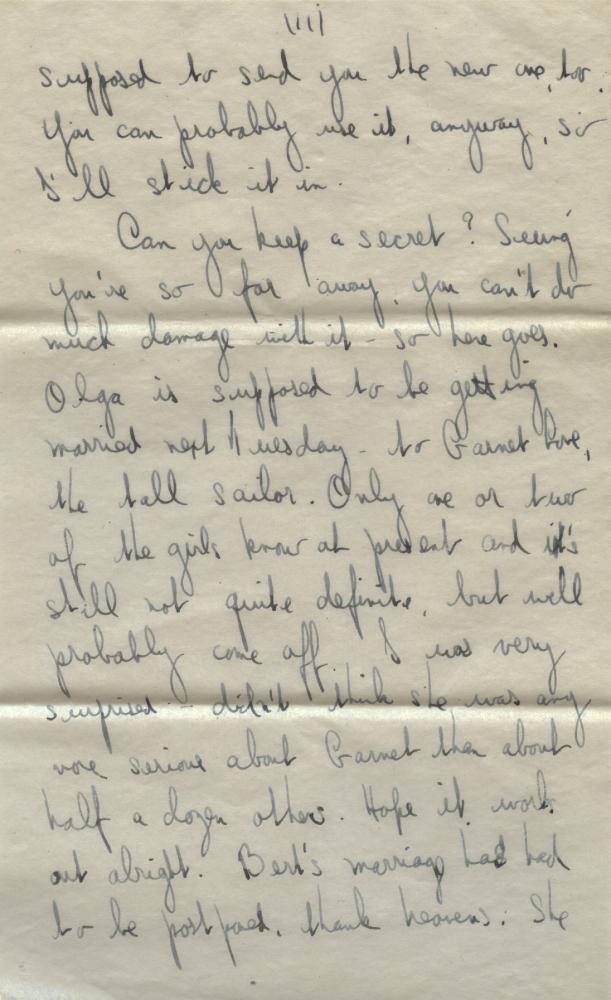 111
supposed to send you the new one, too.
You can probably use it, anyway, so
I'll stick it in.
Can you keep a secret? Seeing
you're so far away, you can't do
much damage with it - so here goes.
Olga is supposed to be getting
married next Tuesday - to Garnet
the tall sailor. Only one or two
of the girls know at present and it's
still not quite definite, but will
probably come off. I was very
surprised - didn't think she was any
more serious about Garnet than about
half a dozen others. Hope it works
out alright. Bert's marriage has had
to be postponed, thank heavens. She